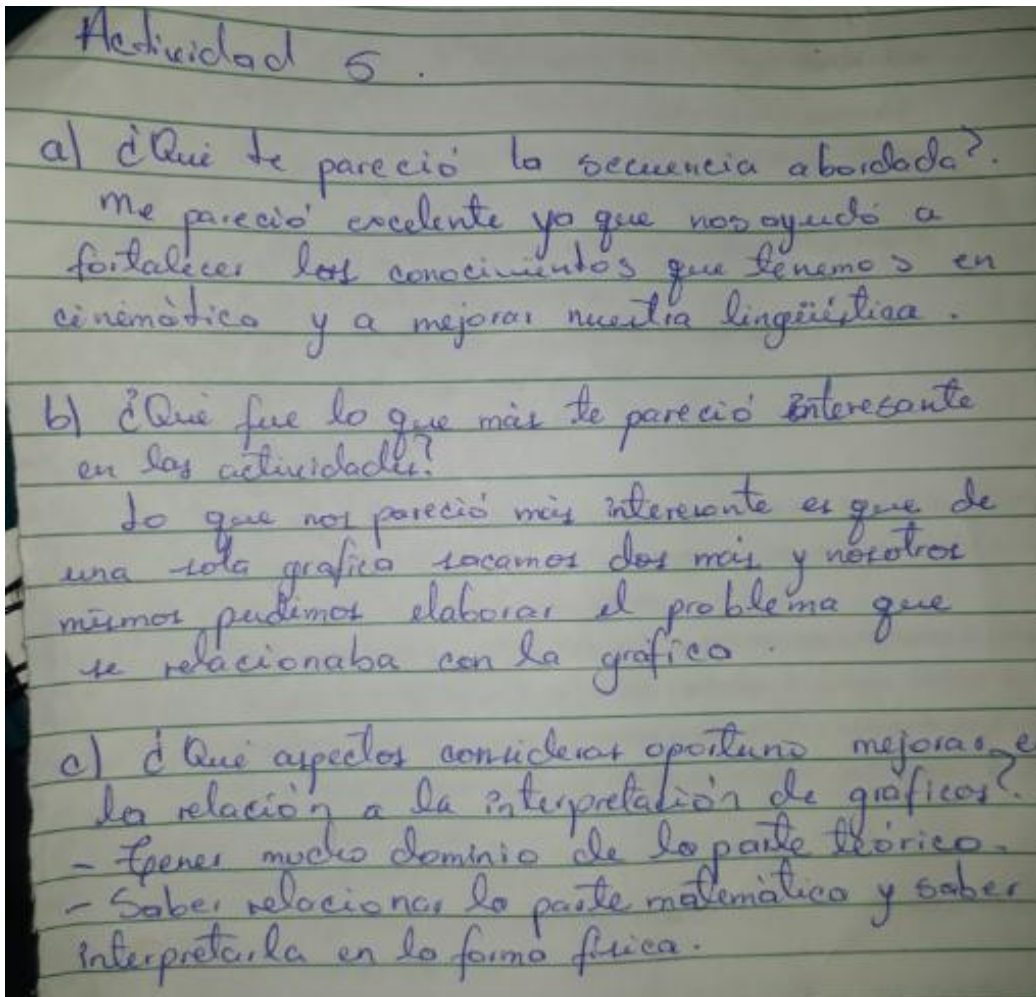 Actividad 5.
a) ¿Qué te pareció la secuencia abordada?.
Me pareció excelente ya que nos ayudó a
fortalecer los conocimientos que tenemos en
cinemática y a mejorar nuestra lingüística.
b) ¿Qué fue lo que más te pareció interesante
en las actividades?
Lo que nos pareció más interesante es que de
una sola grafica sacamos dos más y nosotros
mismos pudimos elaborar el problema que
se relacionaba con la grafica.
c) ¿Qué aspectos consideras oportuno mejorar e
la relación a la interpretación de gráficos?.
- Tener mucho dominio de la parte teórica.
- Saber relacionar la parte matemática y saber
interpretarla en la forma física.